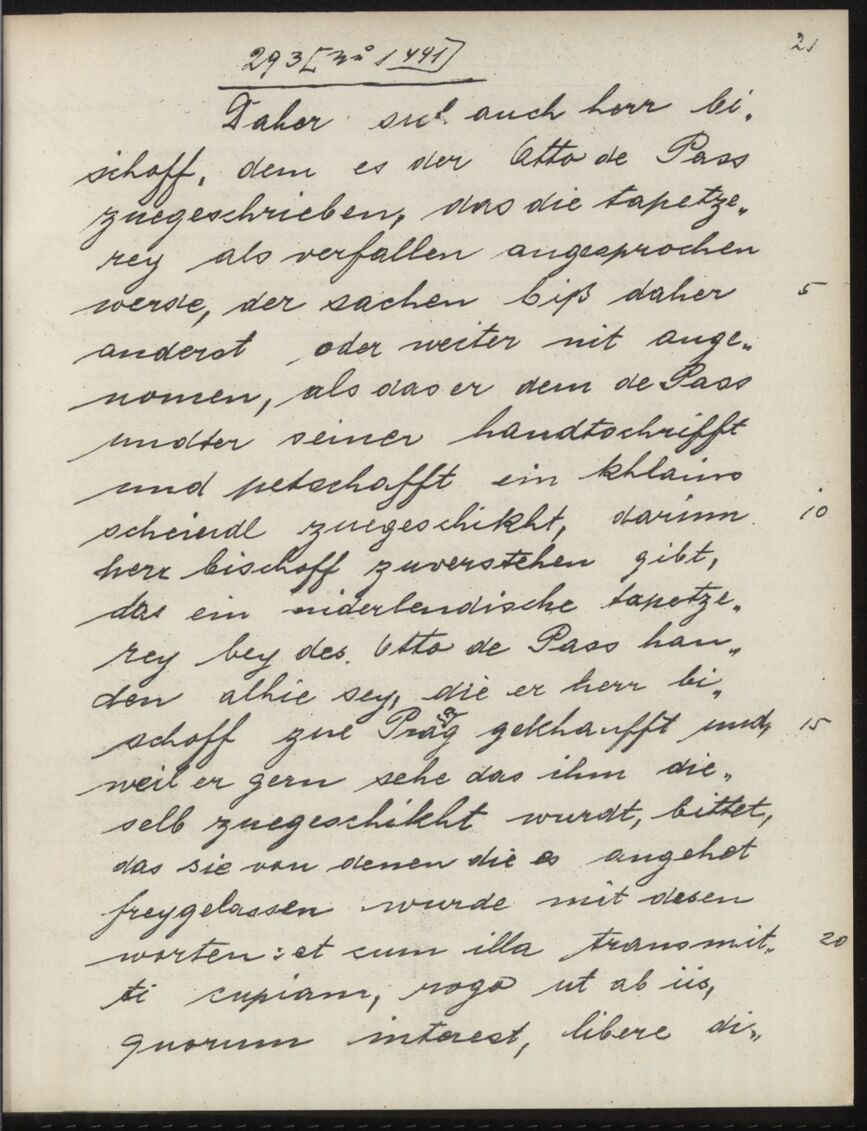 21
293 [nº 1441]
Daher auch herr bi„
schoff, dem es der Otto de Pass
zuegeschrieben, das die tapetze„
rey als verfallen angesprochen
werde, der sachen biß daher 5
anderst oder weiter nit ange„
nomen, als das er dem de Pass
undter seiner handtschrifft
und petschafft ein khlains
scheindl zuegeschikht, darinn 10
herr bischoff zuverstehen gibt,
das ein niderlendische tapetze„
rey bey des Otto de Pass han„
den alhie sey, die er herr bi„
schoff zue Prag gekhaufft und, 15
weil er gern sehe das ihm die„
selb zuegeschikht wurdt, bittet,
das sie von denen die es angehet
freygelassen wurde mit desen
worten: et cum illa transmit„ 20
ti cupiam, rogo ut ab iis,
quorum interest, libere di„